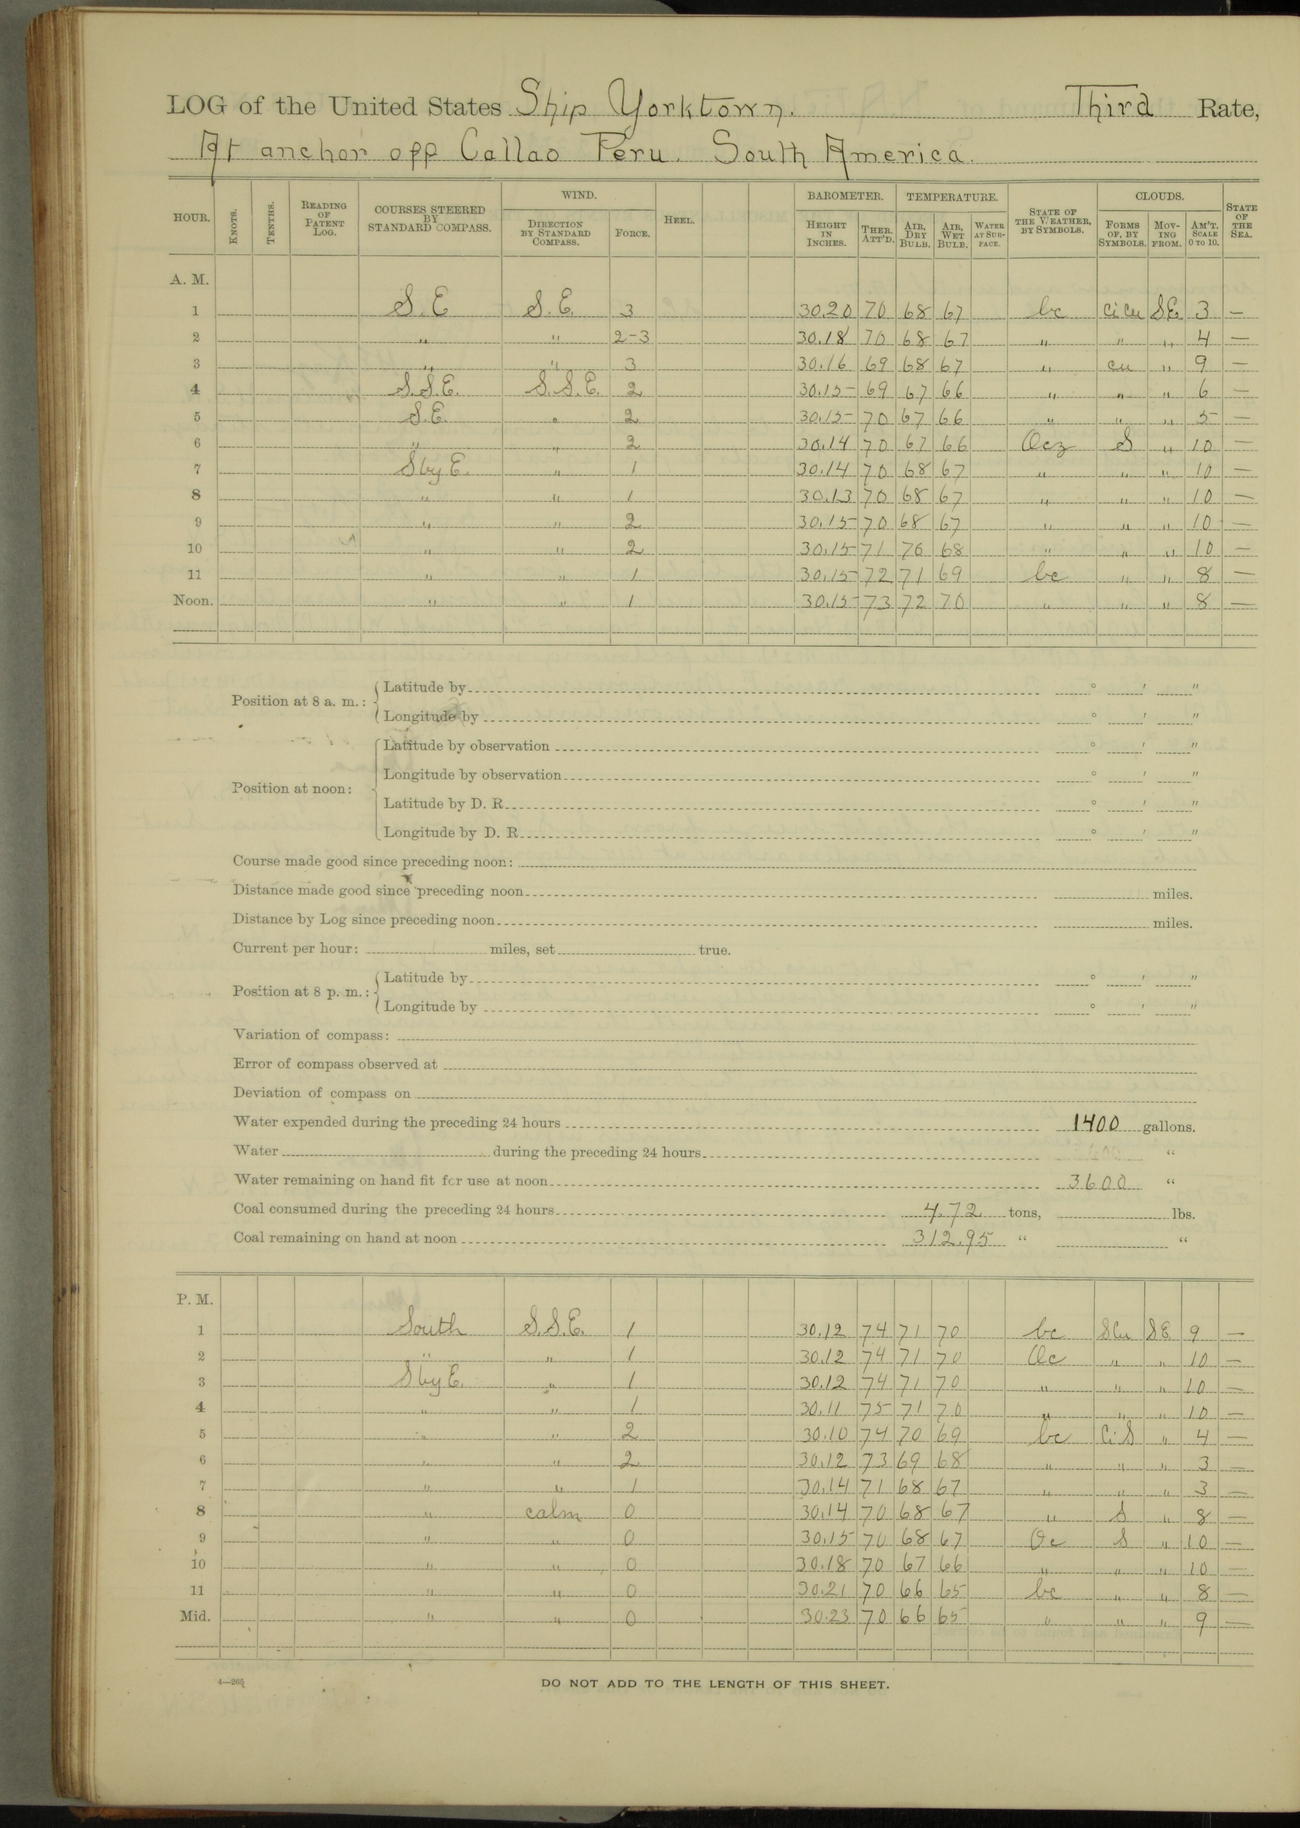 LOG of the United States Ship Yorktown. Third Rate,
At anchor off Callao Peru. South America.
HOUR. KNOTS. TENTHS. READING OF PATENT LOG. COURSES STEERED BY STANDARD COMPASS. WIND. DIRECTION BY STANDARD COMPASS. FORCE. HEEL. BAROMETER. HEIGHT IN INCHES. THER. ATT'D. TEMPERATURE. AIR, DRY BULB. AIR, WET BULB. WATER AT SURFACE. STATE OF THE WEATHER, BY SYMBOLS. CLOUDS. FORMS OF, BY SYMBOLS. MOVING FROM. AM'T. SCALE 0 TO 10. STATE OF THE SEA.
A. M.
1 S.E S.E. 3 30.20 70 68 67 bc ci cu S.E. 3 —
2 " " 2-3 30.18 70 68 67 " " " 4 —
3 " " 3 30.16 69 68 67 " cu " 9 —
4 S.S.E. S.S.E. 2 30.15 69 67 66 " " " 6 —
5 S.E. " 2 30.15 70 67 66 " " " 5 —
6 " " 2 30.14 70 67 66 Ocz S " 10 —
7 S by E. " 1 30.14 70 68 67 " " " 10 —
8 " " 1 30.13 70 68 67 " " " 10 —
9 " " 2 30.15 70 68 67 " " " 10 —
10 " " 2 30.15 71 70 68 " " " 10 —
11 " " 1 30.15 72 71 69 bc " " 8 —
Noon. " " 1 30.15 73 72 70 " " " 8 —
Position at 8 a. m.: Latitude by ° ′ ″
Longitude by ° ′ ″
Position at noon: Latitude by observation ° ′ ″
Longitude by observation ° ′ ″
Latitude by D. R. ° ′ ″
Longitude by D. R. ° ′ ″
Course made good since preceding noon:
Distance made good since preceding noon miles.
Distance by Log since preceding noon miles.
Current per hour: miles, set true.
Position at 8 p. m.: Latitude by ° ′ ″
Longitude by ° ′ ″
Variation of compass:
Error of compass observed at
Deviation of compass on
Water expended during the preceding 24 hours 1400 gallons.
Water during the preceding 24 hours "
Water remaining on hand fit for use at noon 3600 "
Coal consumed during the preceding 24 hours 4.72 tons, lbs.
Coal remaining on hand at noon 312.95 " "
P. M.
1 South S.S.E. 1 30.12 74 71 70 bc S cu S E 9 —
2 " " 1 30.12 74 71 70 Oc " " 10 —
3 S by E. " 1 30.12 74 71 70 " " " 10 —
4 " " 1 30.11 75 71 70 " " " 10 —
5 " " 2 30.10 74 70 69 bc Ci S " 4 —
6 " " 2 30.12 73 69 68 " " " 3 —
7 " " 1 30.14 71 68 67 " " " 3 —
8 " calm 0 30.14 70 68 67 " S " 8 —
9 " " 0 30.15 70 68 67 Oc S " 10 —
10 " " 0 30.18 70 67 66 " " " 10 —
11 " " 0 30.21 70 66 65 bc " " 8 —
Mid. " " 0 30.23 70 66 65 " " " 9 —
4—265
DO NOT ADD TO THE LENGTH OF THIS SHEET.